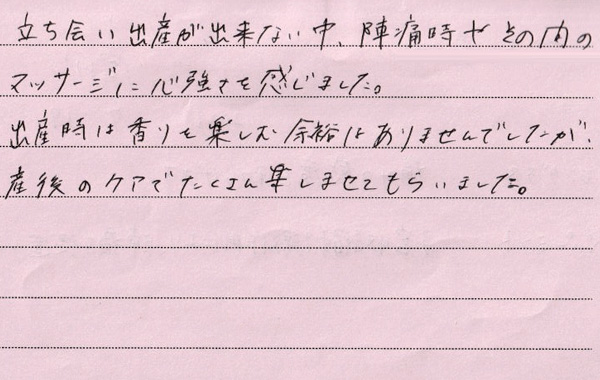 立ち会い出産が出来ない中、陣痛時やその内の
マッサージに心強さを感じました。
出産時は香りを楽しむ余裕はありませんでしたが、
産後のケアでたくさん楽しませてもらいました。